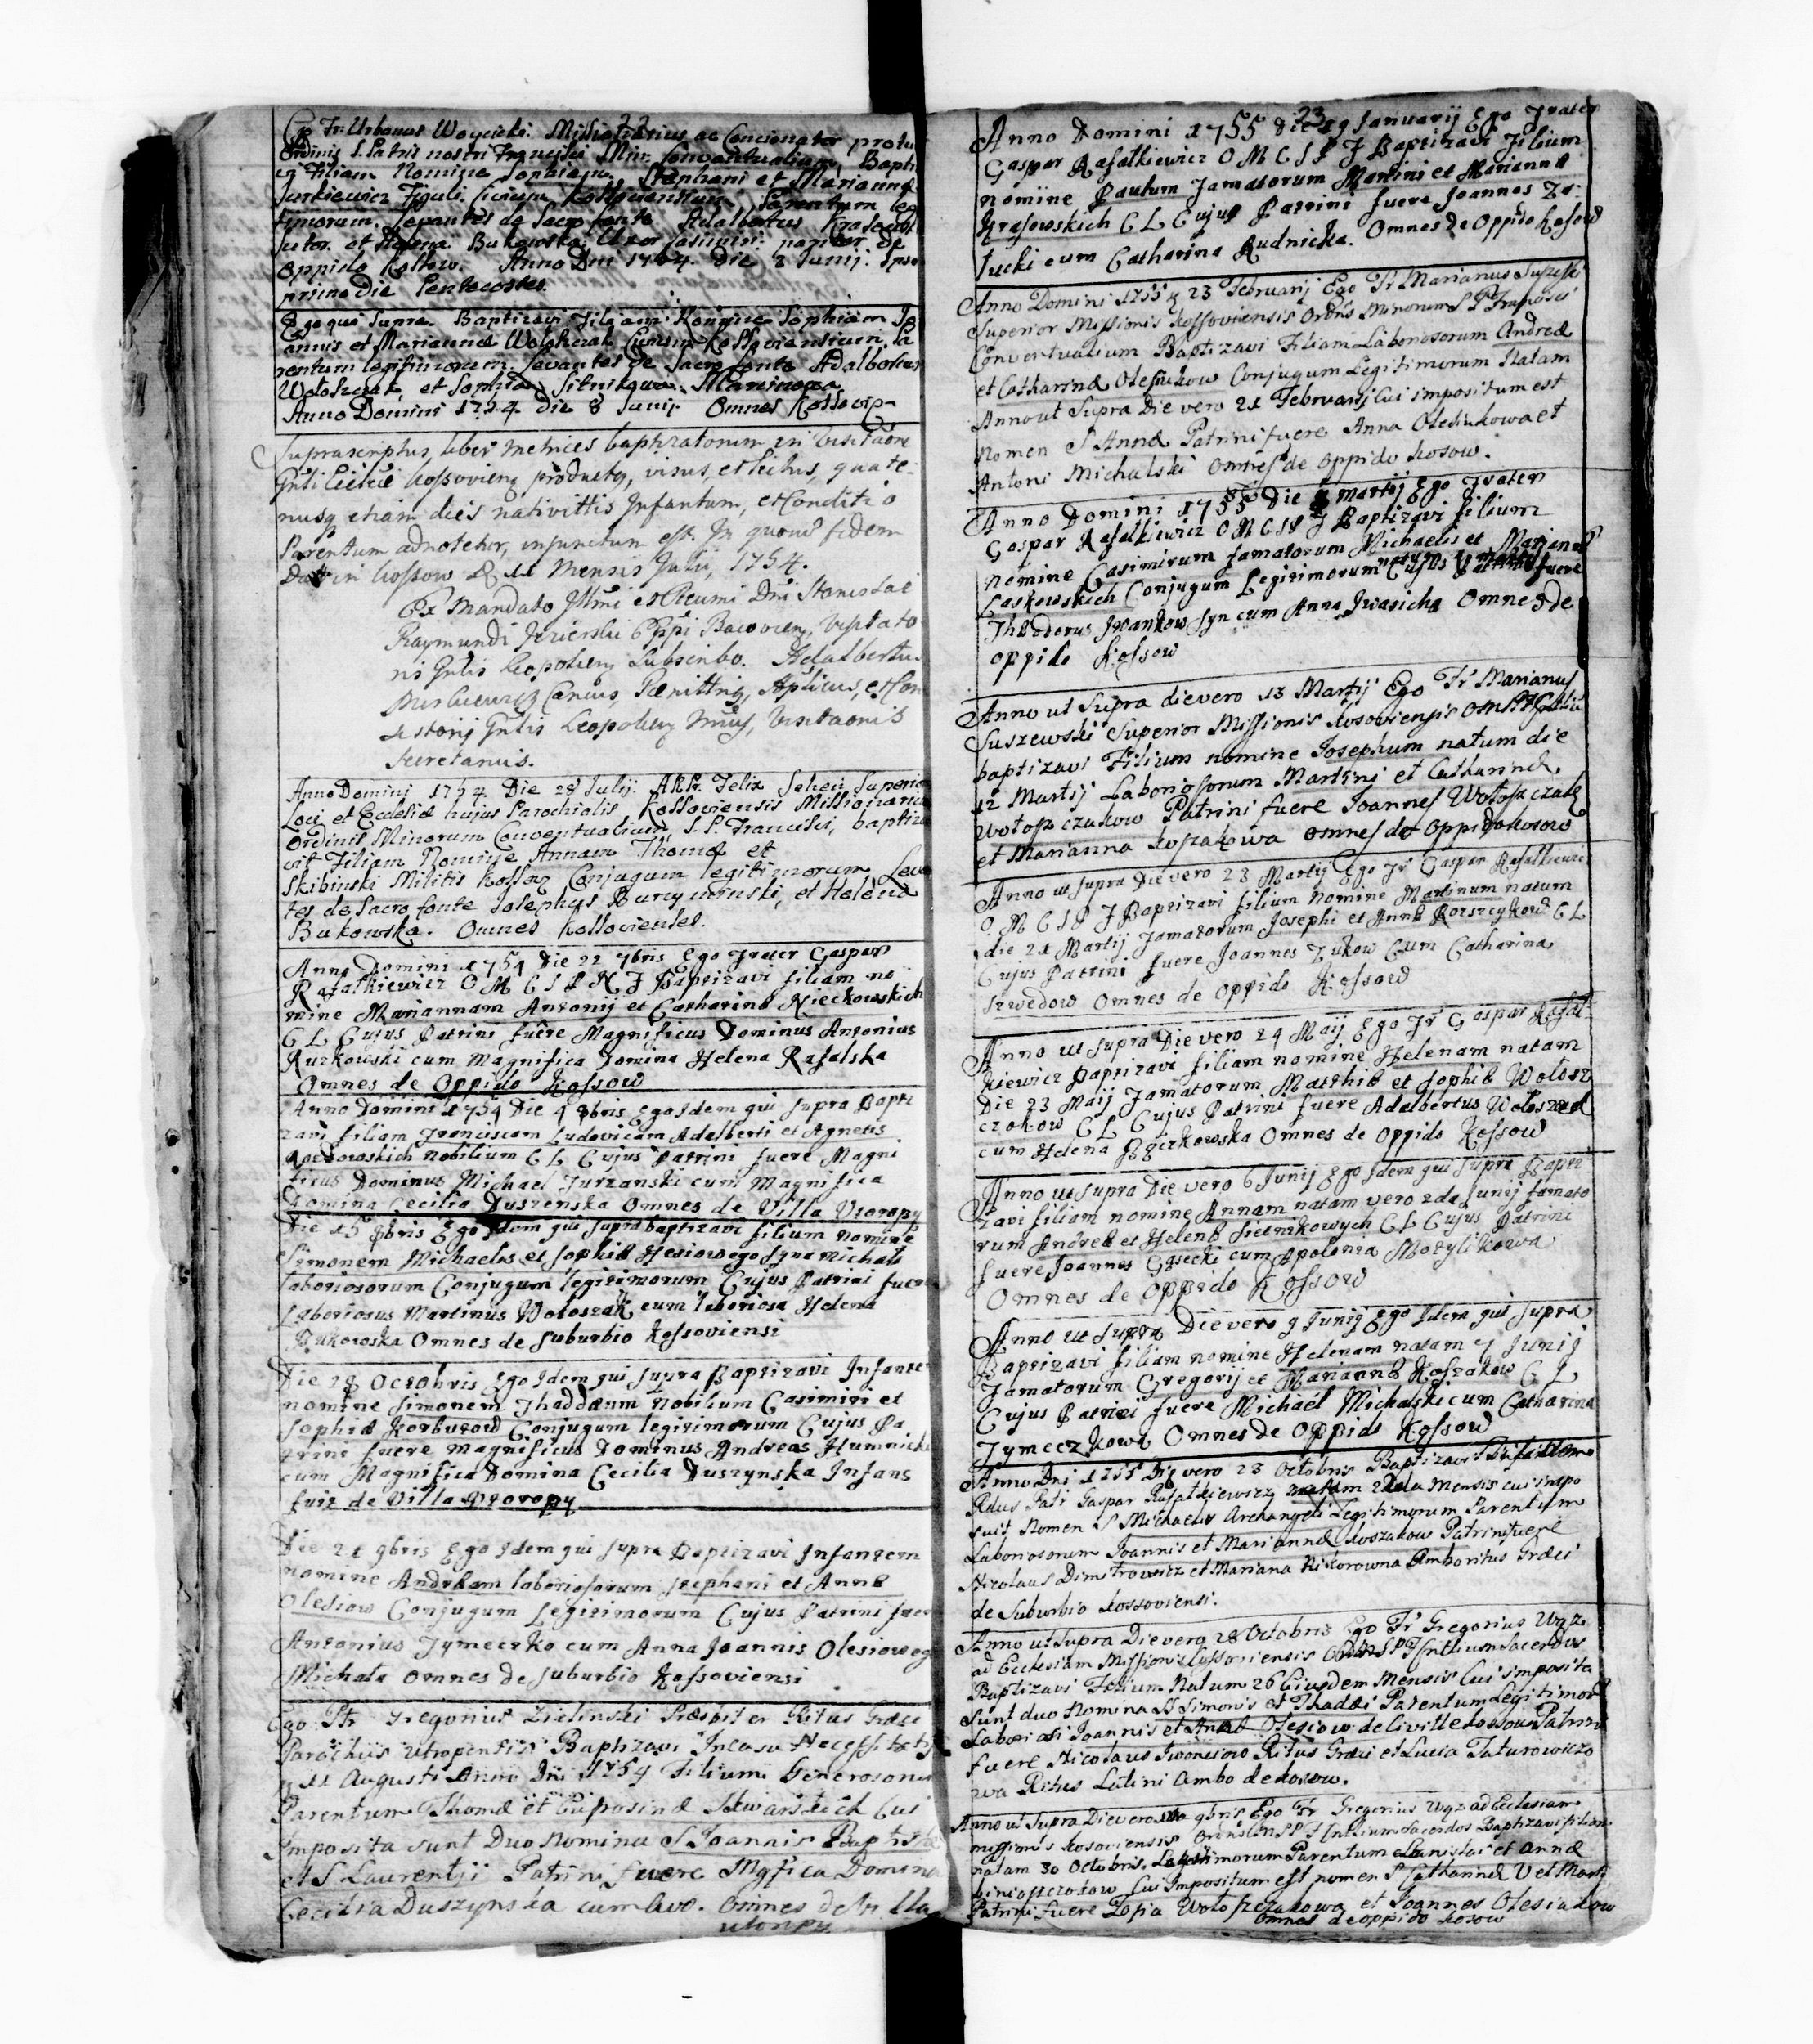 22
Ego Fr: Urbanus Woycicki Missionarius ac Concionator protu
Ordinis S. Patris nostri Francisci Min: Conventualium Bapti
Filiam Nomine Sophiam Stephani et Mariannæ
Jurkiewicz Figuli Civium Kossoviensium Parentum leg
timorum. Levantes de Sacro fonte Adalbertus
Sutor. et Helena Bukowska Uxor pariter de
Oppido Kossow. Anno Dni 1754. Die 2 Junij. Ipso
primo die Pentecostes.
Ego qui Supra Baptizavi Filiam Nomine Sophiam Jo
annis et Mariannæ Wołoszczak Civium Kossoviensium, Pa
rentum legitimorum. Levantes de Sacro fonte Adalbertus
Wołoszczak, et Sophia Sitnikowa
Anno Domini 1754. die 8 Junij. Omnes Kossovien
Suprascriptus liber metrices baptizatorum in visitaōne
Gnli Ecclīæ Kossovien productus, visus, et lectus, quate-
nusq etiam dies nativittis Infantum, et Conditio
Parentum adnotetur, injunctum est. In quorū fidem
Dat in Kossow d. 11 Mensis Julii, 1754.
Ex Mandato Illmi et Rmi Dni Stanislai
Raymundi Jezierski Eppi Bacovien, Visitato
ris Gnlis Leopolien Subscribo. Adalbertus
Cancus, Pænittriq, Aplicus, et Con
sistorij Gnlis Leopolien Nrius, Visitaonis
Secretarius.
Anno Domini 1754 Die 28 Julij. A.R.Pr. Felix Superior
Loci, et Ecclesiæ hujus Parochialis Kossoviensis Missionarius
Ordinis Minorum Conventualium S. P. Francisci, baptiza
vit Filiam Nomine Annam Thomæ et
Skibinski Militis Kossov Conjugum legitimorum Levan
tes de Sacro fonte Josephus Burczyminski, et Helena
Bukowska. Omnes Kossovienses.
Anno Domini 1754 Die 22 7bris Ego Frater Gaspar
Rafałkiewicz O M C S P N F Baptizavi filiam no
mine Mariannam Antonij et Catharinæ Nieckowskich
C L Cujus Patrini fuere Magnificus Dominus Antonius
Kurkowski cum Magnifica Domina Helena Rafalska
Omnes de Oppido Kossow
Anno Domini 1754 Die 4 8bris Ego Idem qui Supra Bapti
zavi filiam Franciscam Ludovicam Adalberti et Agnetis
nobilium C L Cujus Patrini fuere Magni
ficus Dominus Michael Turzanski cum Magnifica
Domina Cecilia Duszenska Omnes de Villa Utoropy
Die 15 8bris Ego Idem qui supra baptizavi filium nomine
Simonem Michaelis et Sophiæ Hesiowego Syna Michała
laboriosorum Conjugum legitimorum Cujus Patrini fuere
Laboriosus Martinus Wołoszak cum laboriosa Helena
Bukowska Omnes de Suburbio Kossoviensi
Die 28 Octobris Ego Idem qui Supra Baptizavi Infante
nomine Simonem Thaddæum Nobilium Casimiri et
Sophiæ Korbutow Conjugum legitimorum Cujus Pa
trini fuere Magnificus Dominus Andreas Humnicki
cum Magnifica Domina Cecilia Duszynska Infans
fuit de Villa Utoropy
Die 21 9bris Ego Idem qui Supra Baptizavi Infantem
nomine Andream laboriosorum Stephani et Annæ
Olesiow Conjugum Legitimorum Cujus Patrini fuer
Antonius Tymeczko cum Anna Joannis Olesioweg
Michała Omnes de Suburbio Kossoviensi
Ego Ptr Gregorius Zielinski Præsbiter Ritus Græci
Parochus Utropensis Baptizavi In casu Necessitatis
d 11 Augusti Anni Dni 1754 Filium Generosorum
Parentum Thomæ et Euprosinæ Skwarskich Cui
Imposita sunt Duo Nomina S Joannis Baptistæ
et S Laurentji Patrini fuere Mgfica Domina
Cecilia Duszynska cum Omnes de Villa
utoropy
23
Anno Domini 1755 Die 19 Januarij Ego Frater
Gaspar Rafałkiewicz O M C S P F Baptizavi Filium
nomine Paulum Famatorum Martini et Mariannæ
Krasowskich C L Cujus Patrini fuere Joannes Za-
łucki cum Catharina Rudnicka. Omnes de Oppido Kosow
Anno Domini 1755 d 23 Februarij Ego Fr Marianus Suszewski
Superior Missionis Kossoviensis Ordnis Minorum S P Francisci
Conventualium Baptizavi Filiam Laboriosorum Andreæ
et Catharinæ Olesiukow Conjugum Legitimorum Natam
Anno ut Supra Die vero 21 Februarij Cui impositum est
Nomen S Annæ Patrini fuere Anna Olesiukowa et
Antoni Michalski Omnes de oppido Kosow.
Anno Domini 1755 Die 9 Martij Ego Frater
Gaspar Rafałkiewicz O M C S P F Baptizavi filium
nomine Casimirum Famatorum Michaelis et Mariannæ
Laskowskich Conjugum Legitimorum Cujus Patrini fuere
Theodorus Iwankow Syn cum Anna Iwasicha Omnes de
oppido Kossow
Anno ut Supra die vero 13 Martij Ego Fr Marianus
Suszewski Superior Missionis Kosoviensis
baptizavi Filium nomine Josephum natum die
12 Martij Laboriosorum Martini et Catharinæ
Wołoszczukow Patrini fuere Joannes Wołoszczak
et Marianna Koszakowa omnes de oppido Kosow
Anno ut supra Die vero 23 Martij Ego Fr Gaspar Rafałkiewicz
O M C S P F Baptizavi filium nomine Martinum natum
die 21 Martij Famatorum Josephi et Annæ C L
Cujus Patrini fuere Joannes Zukow Cum Catharina
Szwedow Omnes de oppido Kossow
Anno ut supra Die vero 24 Maij Ego Fr Gaspar Rafał-
kiewicz Baptizavi filiam nomine Helenam natam
Die 23 Maij Famatorum Matthiæ et Sophiæ Wołosz
czokow C L Cujus Patrini fuere Adalbertus
cum Helena Omnes de oppido Kossow
Anno ut supra Die vero 6 Junij Ego Idem qui supra Bapti
zavi filiam nomine Annam natam vero 2da Junij famato
rum Andreæ et Helenæ Sietnikowych C L Cujus Patrini
fuere Joannes Gąsecki cum Apolonia Motylikowa
Omnes de oppido Kossow
Anno ut supra Die vero 9 Junij Ego Idem qui supra
Baptizavi filiam nomine Helenam natam 7 Junij
Famatorum Gregorij et Mariannæ Koszakow C L
Cujus Patrini fuere Michaël Michalski cum Catharina
Tymeczkowa Omnes de Oppido Kossow
Anno Dni 1755 Die vero 23 Octobris Baptizavit Infantem
Rdus Patr Gaspar Rafałkiewicz natum Mensis cui impo
suit Nomen S Michaelis Archangeli Legitimorum Parentum
Laboriosorum Joannis et Mariannæ Koszakow Patrini fuere
Nicolaus Dimitrowicz et Mariana Nikorowna Amboritus Græci
de Suburbio Kossoviensi.
Anno ut Supra Die vero 28 Octobris Ego Fr Gregorius
ad Ecclesiam Missionis Kossoviensis Sacerdos
Baptizavi Filium Natum 26 Eiusdem Mensis Cui imposita
sunt duo Nomina SS Simonis et Thadæi Parentum Legitimor
Laboriosi Joannis et Annæ Olesiow de Civitte Kossow Patrini
fuere Nicolaus Iwonciow Ritus Græci et Lucia Taturowiczo
wa Ritus Latini Ambo de Kosow.
Anno ut Supra Die vero 9bris Ego Fr Gregorius ad Ecclesiam
missionis Kosoviensis Sacerdos Baptizavi filiam
natam 30 Octobris Legitimorum Parentum Stanislai et Annæ
Cui Impositum est nomen S Catharinæ V et Mart
Patrini fuere Zofia Wołoszczakowa et Joannes Olesiakow
Omnes de oppido Kosow